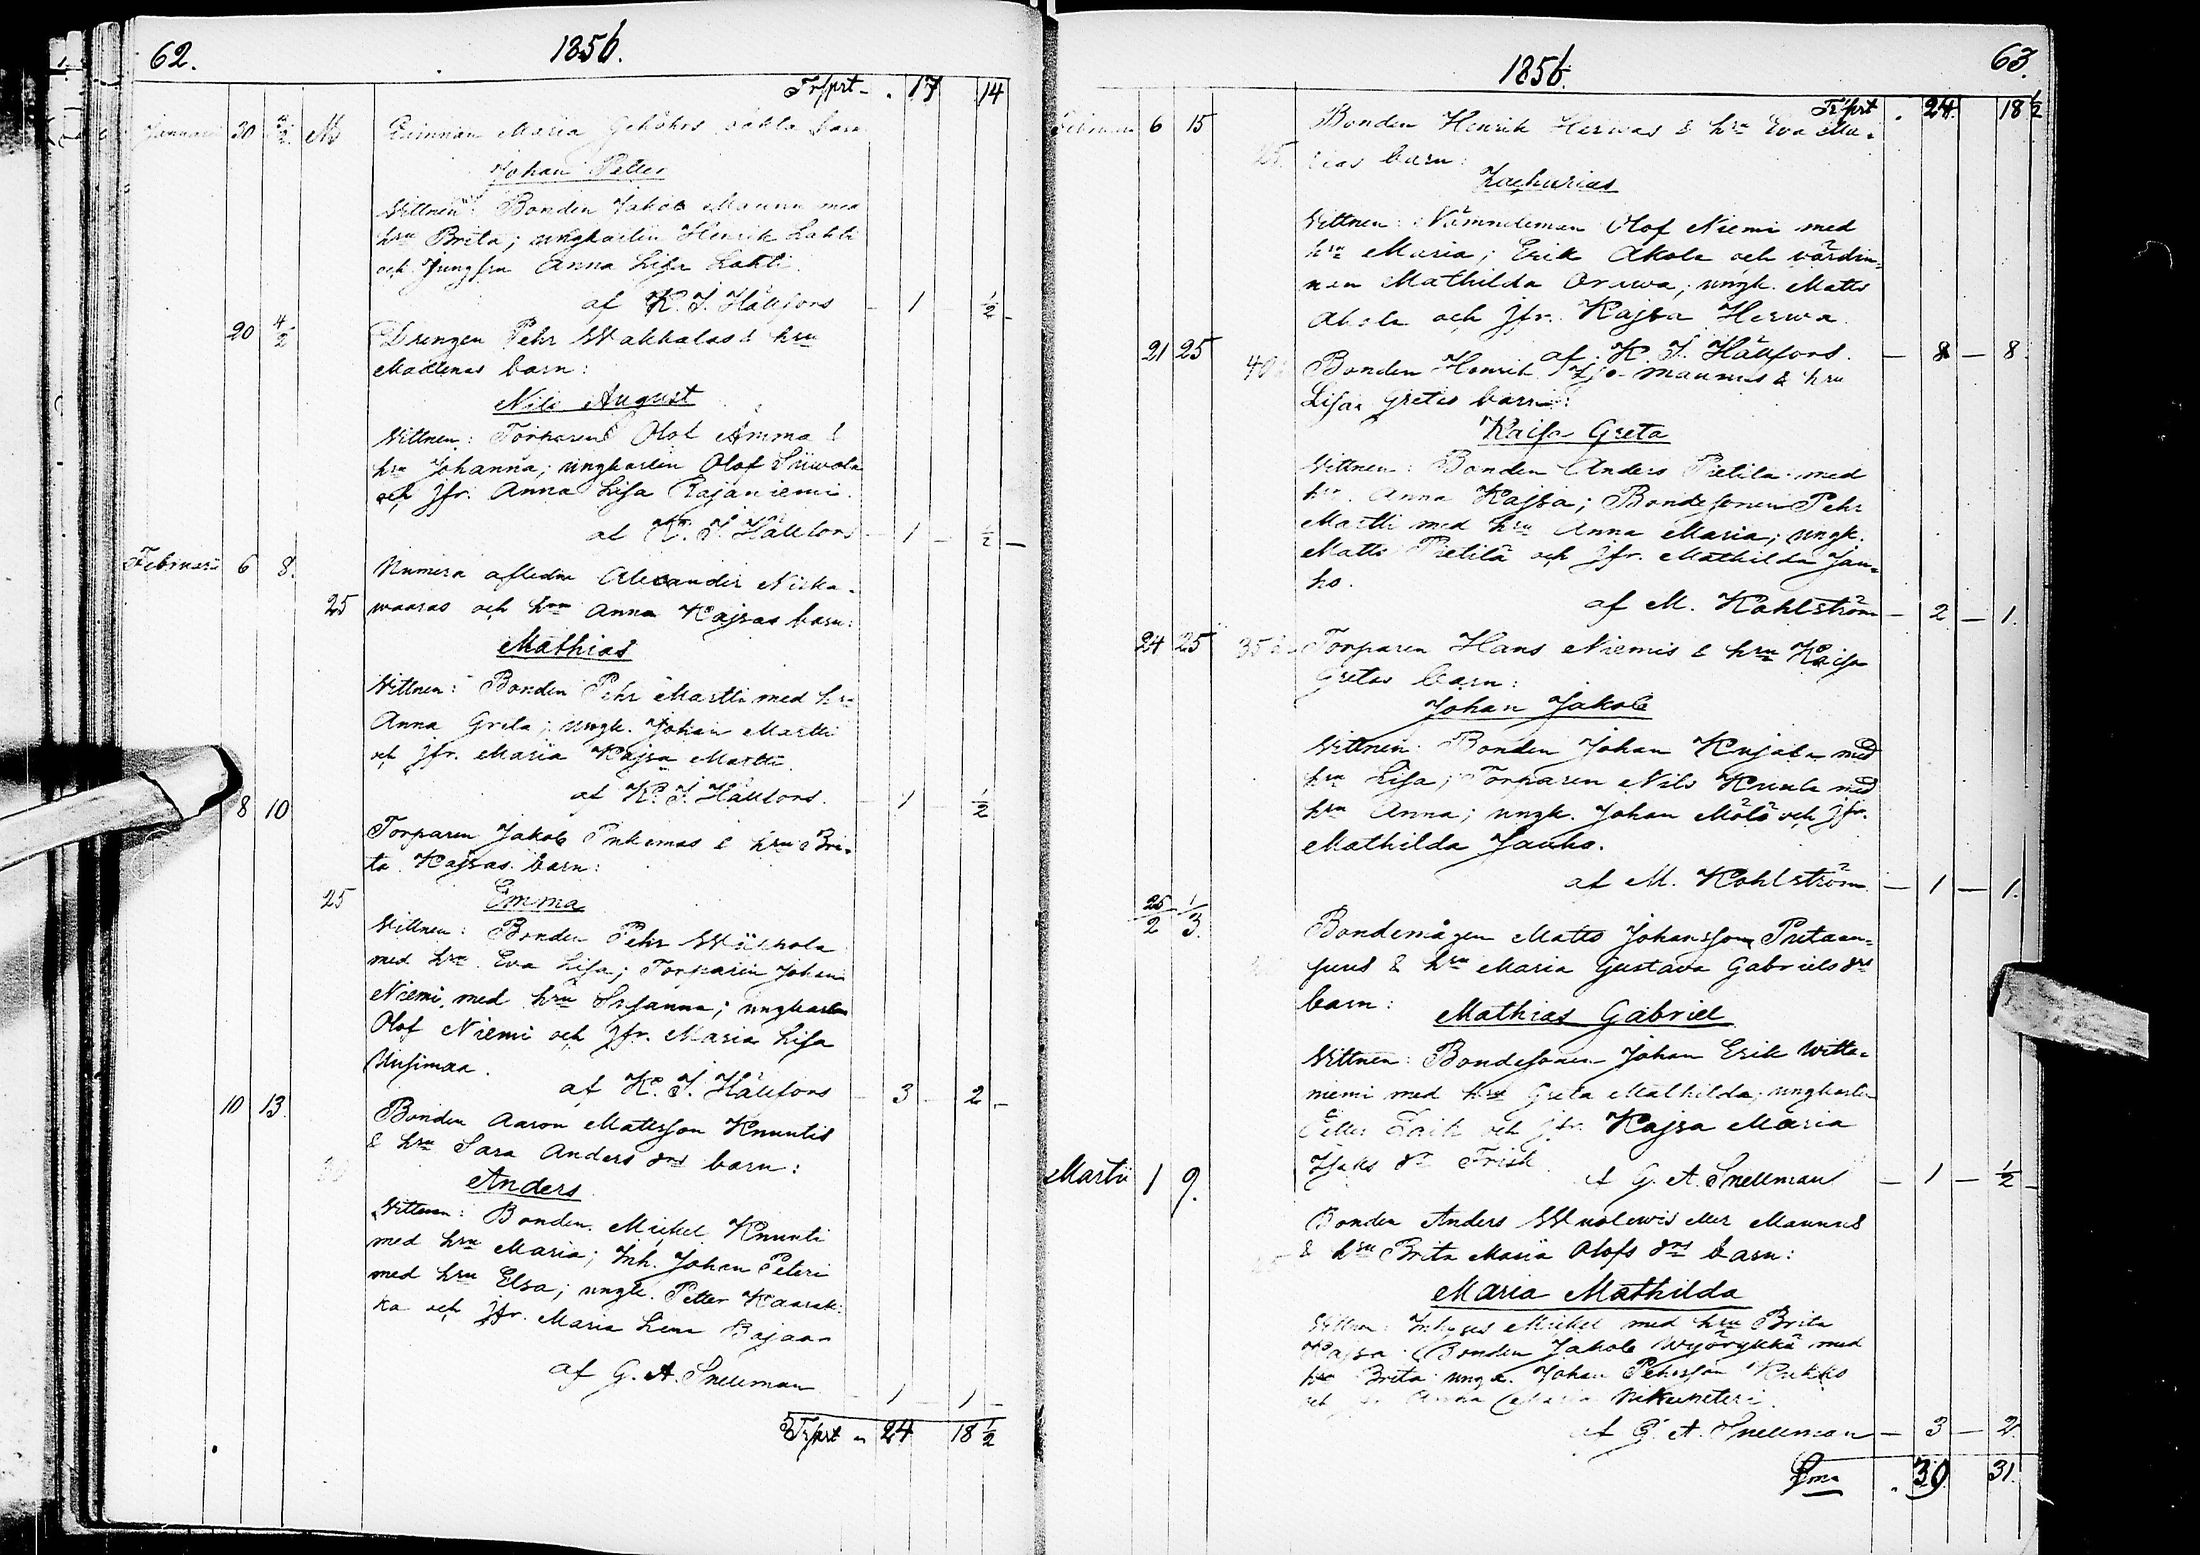 62.
1856.
Trsprt - . 17 14
Januari 30 3/2 M Qvinnan Maria oäkta barn
Johan Petter
Vittnen: Bonden Jakob Maunu med
hru Brita; ungkarlen Henrik Lahti
och Jungfru Anna Lisa Lahti.
af K. J. Hällfors - 1 - 1/2 -
20 4/2 Drengen Pehr Wakkalas & hru
barn:
Nils August
Vittnen: Torparen Olof Amma &
hru Johanna; ungkarlen Olof Siiwola
och jfr. Anna Lisa Rajaniemi.
af K. J. Hällfors - 1 - 1/2 -
Februari 6 8. Numera aflidne Alexander Niska-
25 waaras och hru Anna Kajsas barn:
Mathias
Vittnen: Bonden Pehr Martti med hru
Anna Greta; ungk. Johan Martti
och jfr. Maria Kajsa Martti.
af K. J. Hällfors. - 1 - 1/2
8 10
Torparen Jakob & hru Bri-
ta Kajsas barn:
25 Emma
Vittnen: Bonden Pehr
med hru Eva Lisa; Torparen Johan
Niemi med hru Susanna; ungkarlen
Olof Niemi och jfr. Maria Lisa
Uusimaa.
af K. J. Hällfors - 3 - 2 -
10 13. Bonden Aaron Matsson Knuutis
& hru Sara Anders drs barn:
Anders
Vittnen: Bonden Mickel Knuuti
med hru Maria; Inh. Johan Peteri
med hru Elsa; ungk. Petter
ka och jfr. Maria Lena Bajaan
af G. A. Snellman - 1 - 1 -
Trsprt - 24 18 1/2
1856.
63.
Trsprt . 24. 18 1/2
Februari 6 15 Bonden Henrik Herwas & hru Eva Ma-
25 rias barn:
Zacharias
Vittnen: Nämndeman Olof Niemi med
hru Maria; Erik Ahola och värdin-
nan Mathilda Orawa; ungk. Matts
Ahola och jfr. Kajsa Herwa.
af K. J. Hällfors. - 8 - 8.
21 25 40 Bonden Henrik Maunus & hru
Lisa Gretas barn:
Kaisa Greta
Vittnen: Bonden Anders Pietilä med
hru Anna Kajsa; Bondesonen Pehr
Martti med hru Anna Maria; ungk.
Matts Pietilä och jfr. Mathilda Jau-
ho.
af M. Kohlström - 2 - 1.
24 25 35 Torparen Hans Niemis & hru Kaisa
Gretas barn:
Johan Jakob
Vittnen: Bonden Johan Kujala med
hru Lisa; Torparen Nils med
hru Anna; ungk. Johan Mölö och jfr.
Mathilda Jauho.
af M. Kohlström - 1 - 1.
25/2 1/3. Bondemågen Matts Johansson Pietaan-
suus & hru Maria Gustava Gabriels drs
barn:
Mathias Gabriel
Vittnen: Bondesonen Johan Erik Witta-
niemi med hru Greta Mathilda; ungkarlen
Petter och jfr. Kajsa Maria
Isaks dr Frisk.
af G. A. Snellman - 1 - 1/2 -
Martii 1 9.
Bonden Anders Wuolewis eller Maunus
& hru Brita Maria Olofs drs barn:
Maria Mathilda
Vittnen: Inhyses Mickel med hru Brita
Kajsa; Bonden Jakob Wyörykkä med
hru Brita; ungk. Johan Pehrsson Kukko
och jfr. Anna Maria
af G. A. Snellman - 3 - 2
Sma . 39 31.